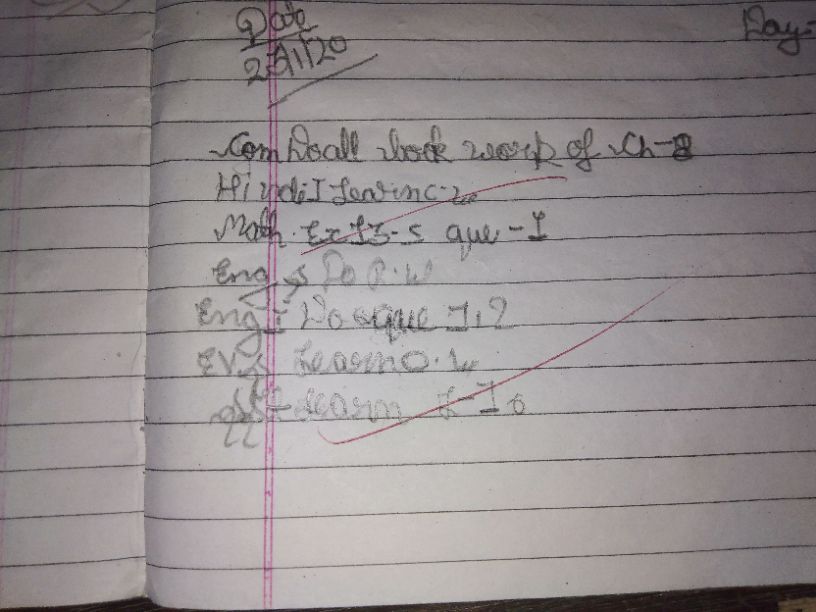 Date
Day:
23/1/20
Com Do all book work of Ch-8
Hindi I learn c.w
Math. Ex 13.5 que-1
Eng Do P.W
Eng I Do que 1,2
EVS Learn O.W
Learn 1-10